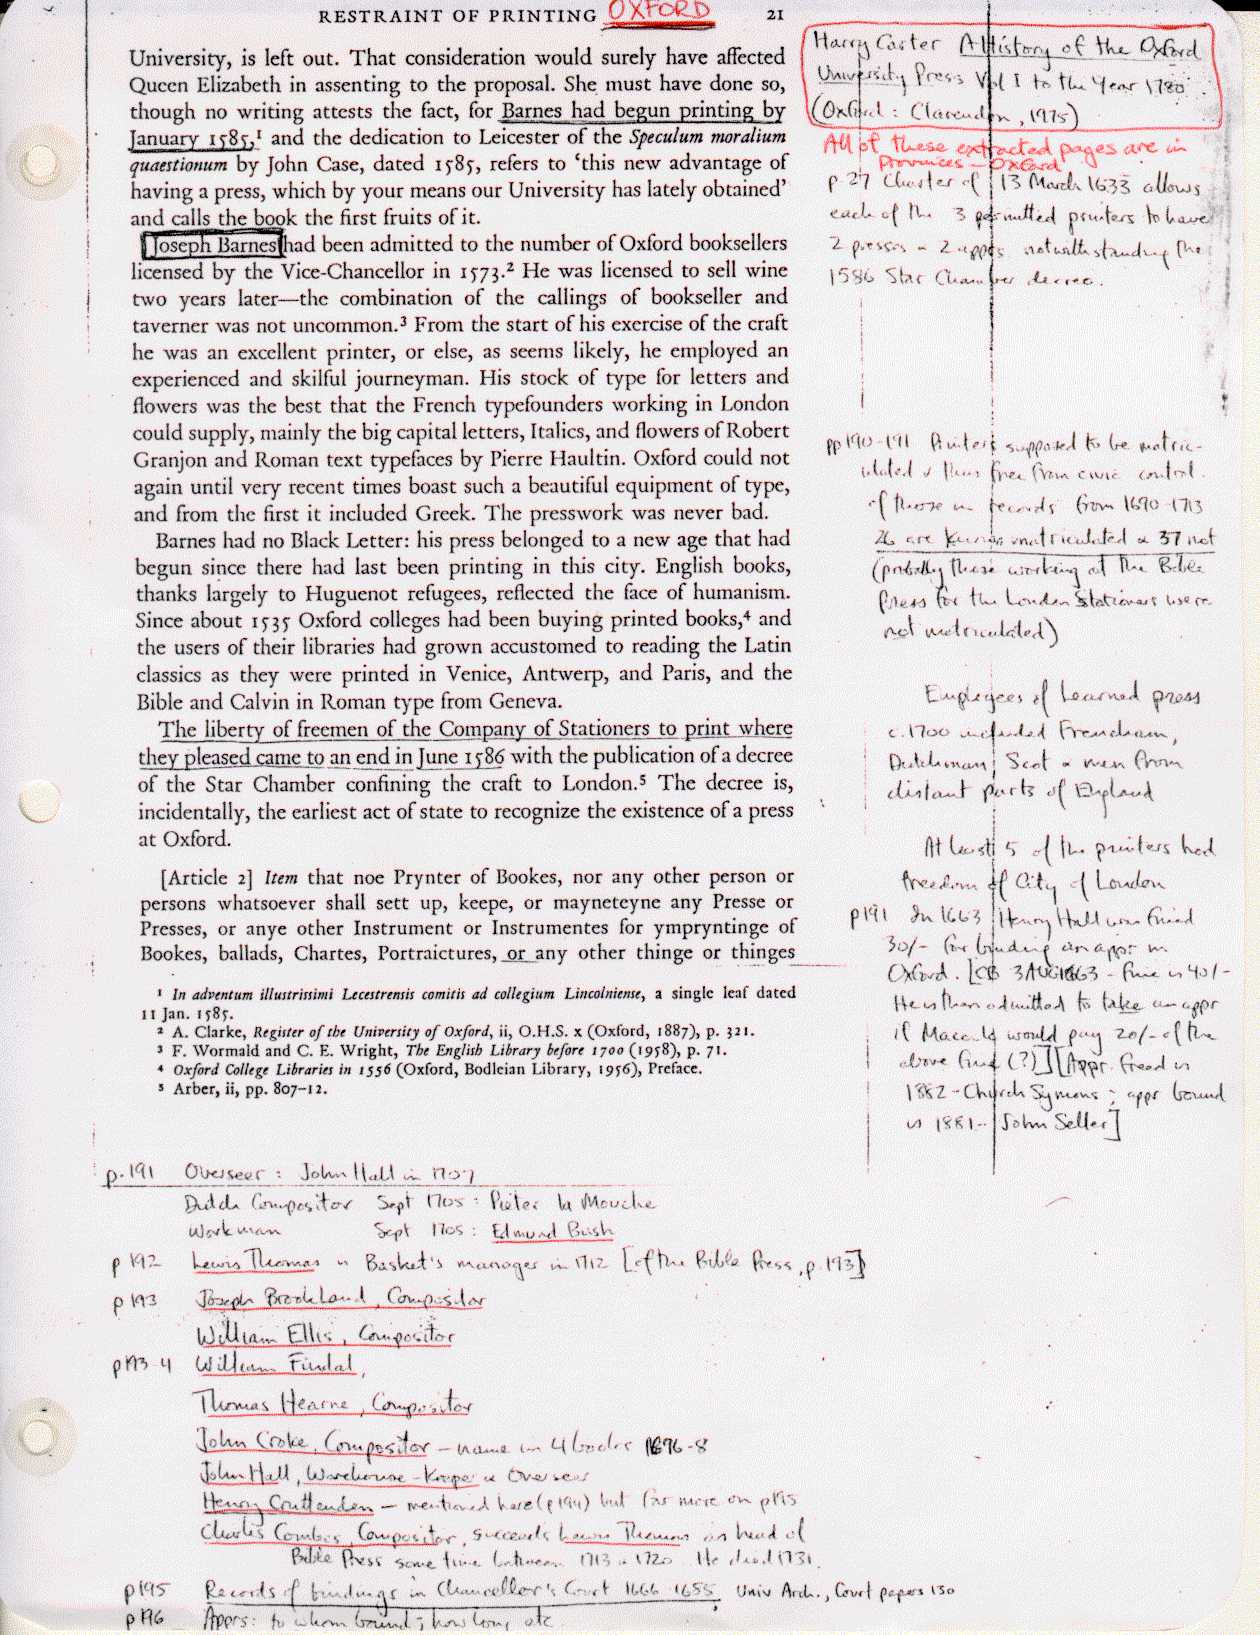 RESTRAINT OF PRINTING OXFORD 21
University, is left out. That consideration would surely have affected
Queen Elizabeth in assenting to the proposal. She must have done so,
though no writing attests the fact, for Barnes had begun printing by
January 1585,¹ and the dedication to Leicester of the Speculum moralium
quaestionum by John Case, dated 1585, refers to ‘this new advantage of
having a press, which by your means our University has lately obtained’
and calls the book the first fruits of it.
Joseph Barnes had been admitted to the number of Oxford booksellers
licensed by the Vice-Chancellor in 1573.² He was licensed to sell wine
two years later—the combination of the callings of bookseller and
taverner was not uncommon.³ From the start of his exercise of the craft
he was an excellent printer, or else, as seems likely, he employed an
experienced and skilful journeyman. His stock of type for letters and
flowers was the best that the French typefounders working in London
could supply, mainly the big capital letters, Italics, and flowers of Robert
Granjon and Roman text typefaces by Pierre Haultin. Oxford could not
again until very recent times boast such a beautiful equipment of type,
and from the first it included Greek. The presswork was never bad.
Barnes had no Black Letter: his press belonged to a new age that had
begun since there had last been printing in this city. English books,
thanks largely to Huguenot refugees, reflected the face of humanism.
Since about 1535 Oxford colleges had been buying printed books,⁴ and
the users of their libraries had grown accustomed to reading the Latin
classics as they were printed in Venice, Antwerp, and Paris, and the
Bible and Calvin in Roman type from Geneva.
The liberty of freemen of the Company of Stationers to print where
they pleased came to an end in June 1586 with the publication of a decree
of the Star Chamber confining the craft to London.⁵ The decree is,
incidentally, the earliest act of state to recognize the existence of a press
at Oxford.
[Article 2] Item that noe Prynter of Bookes, nor any other person or
persons whatsoever shall sett up, keepe, or mayneteyne any Presse or
Presses, or anye other Instrument or Instrumentes for ympryntinge of
Bookes, ballads, Chartes, Portraictures, or any other thinge or thinges
¹ In adventum illustrissimi Lecestrensis comitis ad collegium Lincolniense, a single leaf dated
11 Jan. 1585.
² A. Clarke, Register of the University of Oxford, ii, O.H.S. x (Oxford, 1887), p. 321.
³ F. Wormald and C. E. Wright, The English Library before 1700 (1958), p. 71.
⁴ Oxford College Libraries in 1556 (Oxford, Bodleian Library, 1956), Preface.
⁵ Arber, ii, pp. 807–12.
Harry Carter A History of the Oxford
University Press Vol I to the Year 1780
(Oxford: Clarendon, 1975)
All of these extracted pages are in
Provinces - Oxford
p.27 Charter of 13 March 1633 allows
each of the 3 permitted printers to have
2 presses & 2 apprs notwithstanding the
1586 Star Chamber decree.
pp 190-191 Printers supposed to be matric-
ulated & thus free from civic control.
Of those in records from 1690-1713
26 are known matriculated & 37 not
(probably those working at the Bible
Press for the London Stationers were
not matriculated)
Employees of Learned press
c.1700 included Frenchman,
Dutchman, Scot & men from
distant parts of England
At least 5 of the printers had
freedom of City of London
p191 In 1663 Henry Hall was fined
30/- for binding an appr in
Oxford. [CB 3AUG1663 - fine is 40/-
He is then admitted to take an appr
if would pay 20/- of the
above fine (?)] [Appr. freed in
1882 - Church Symons; appr bound
in 1881 - John Seller]
p.191 Overseer: John Hall in 1707
Dutch Compositor Sept 1705: Pieter la Mouche
Workman Sept 1705: Edmund Bush
p192 Lewis Thomas is Basket's manager in 1712 [of the Bible Press, p.193]
p193 Joseph Brookland, Compositor
William Ellis, Compositor
p193-4 William Findal,
Thomas Hearne, Compositor
John Crooke, Compositor - name in 4 books 1696-8
John Hall, Warehouse-Keeper & Overseer
Henry Cruttenden - mentioned here (p194) but far more on p195
Charles Combes, Compositor, succeeds Lewis Thomas as head of
Bible Press some time between 1713 & 1720. He died 1731.
p195 Records of bindings in Chancellor's Court 1666-1655, Univ Arch., Court papers 130
p196 Apprs: to whom bound; how long etc